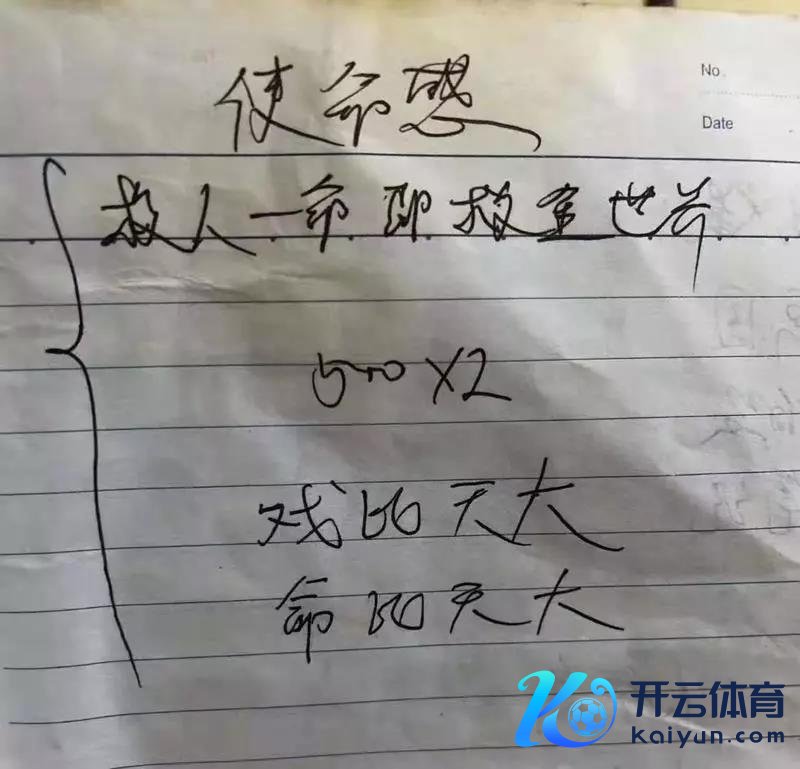 使命感
No.
Date
救人一命即救全世界
500×2
戏比天大
命比天大
开云体育
Kaiyun.com